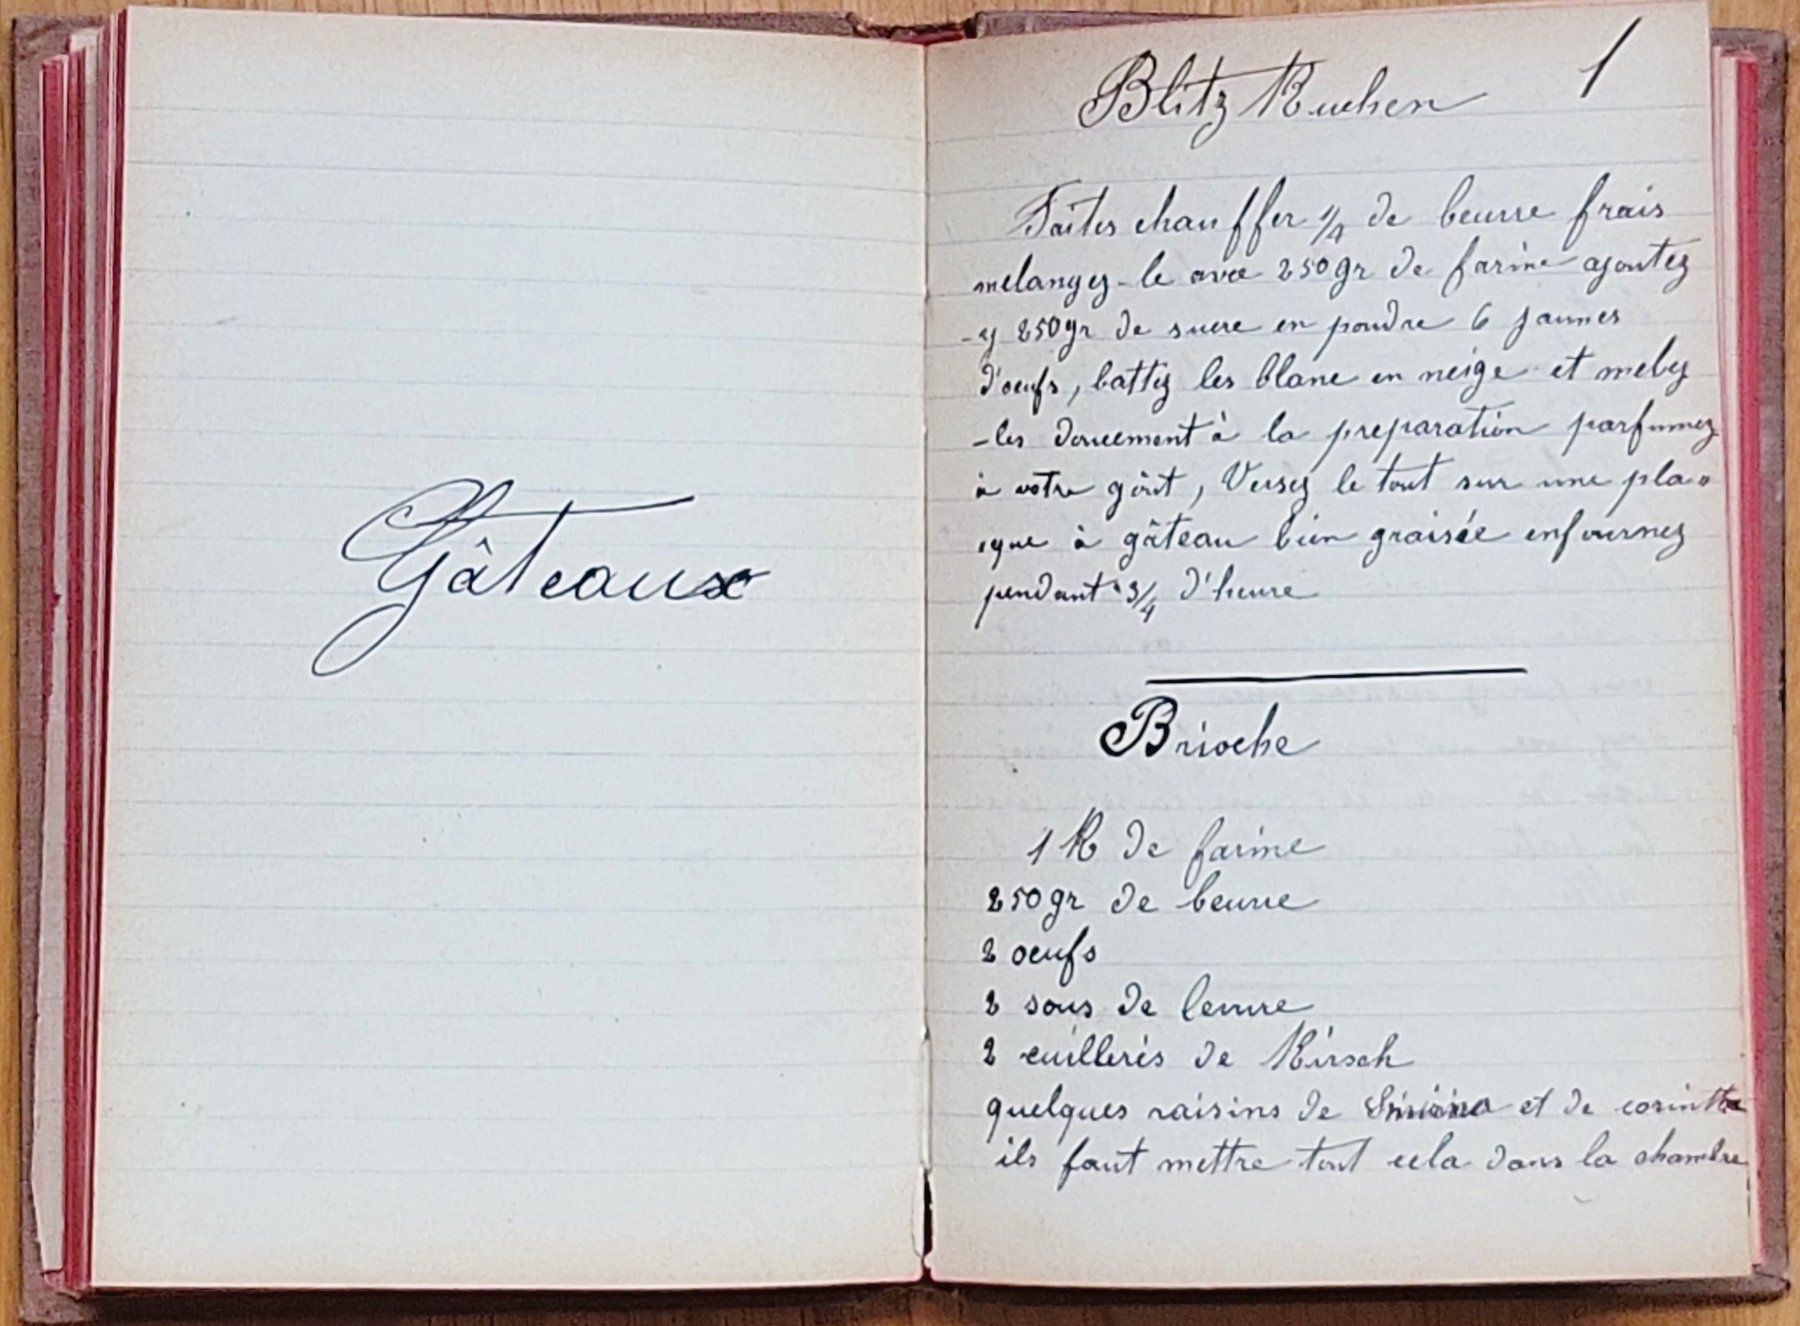 Gâteaux
1
Blitz Kuchen
Faites chauffer 1/4 de beurre frais
melangez-le avec 250gr de farine ajoutez
-y 250gr de sucre en poudre 6 jaunes
d'oeufs, battez les blanc en neige et melez
-les doucement à la preparation parfumez
à votre goût, Versez le tout sur une pla-
-que à gâteau bien graisée enfournez
pendant 3/4 d'heure
Brioche
1 K de farine
250gr de beurre
2 oeufs
2 sous de levure
2 cuillerés de Kirsch
quelques raisins de et de corinthe
ils faut mettre tout cela dans la chambre